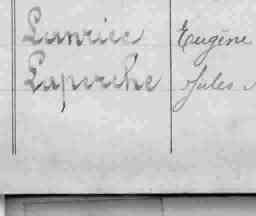 Lanriec Eugène
Laperche Jules